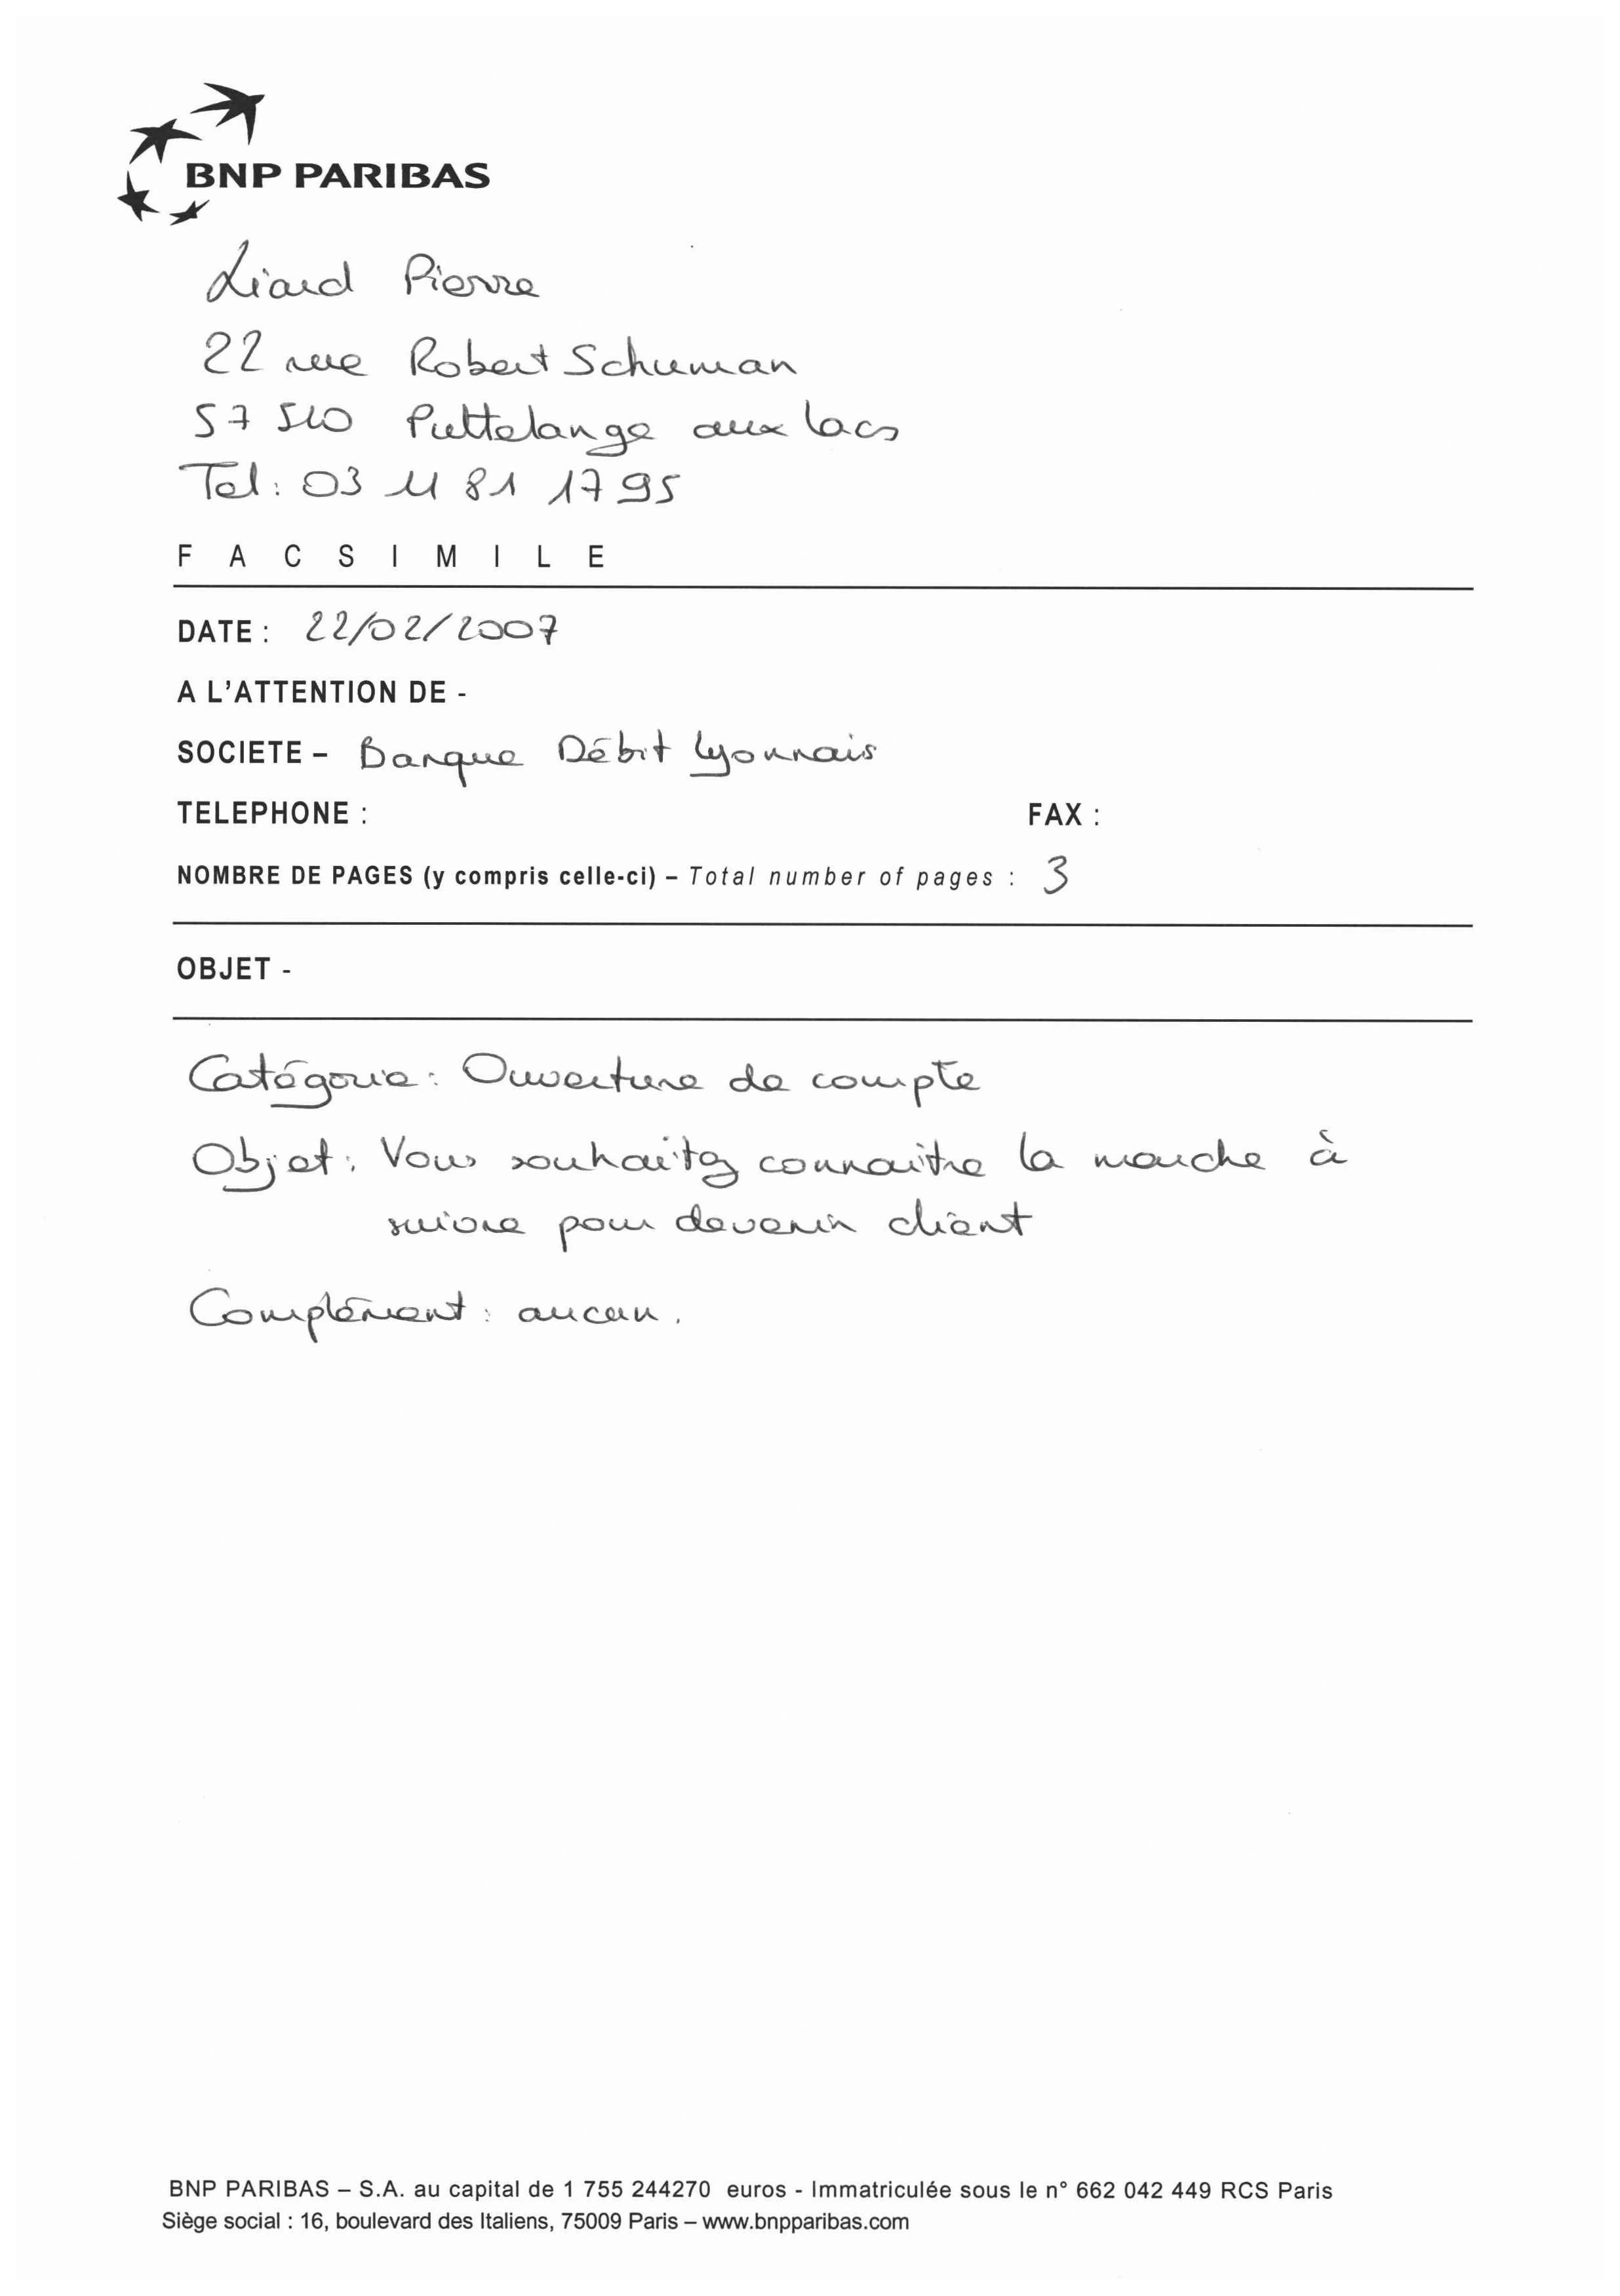 BNP PARIBAS
Liard Pierre
22 rue Robert Schuman
57 510 Puttelange aux lacs
Tel: 03 11 81 17 95
FACSIMILE
DATE : 22/02/2007
A L'ATTENTION DE -
SOCIETE – Banque Débit Lyonnais
TELEPHONE : FAX :
NOMBRE DE PAGES (y compris celle-ci) – Total number of pages : 3
OBJET -
Catégorie : Ouverture de compte
Objet : Vous souhaitez connaitre la marche à
suivre pour devenir client
Complément : aucun.
BNP PARIBAS – S.A. au capital de 1 755 244270 euros - Immatriculée sous le n° 662 042 449 RCS Paris
Siège social : 16, boulevard des Italiens, 75009 Paris – www.bnpparibas.com